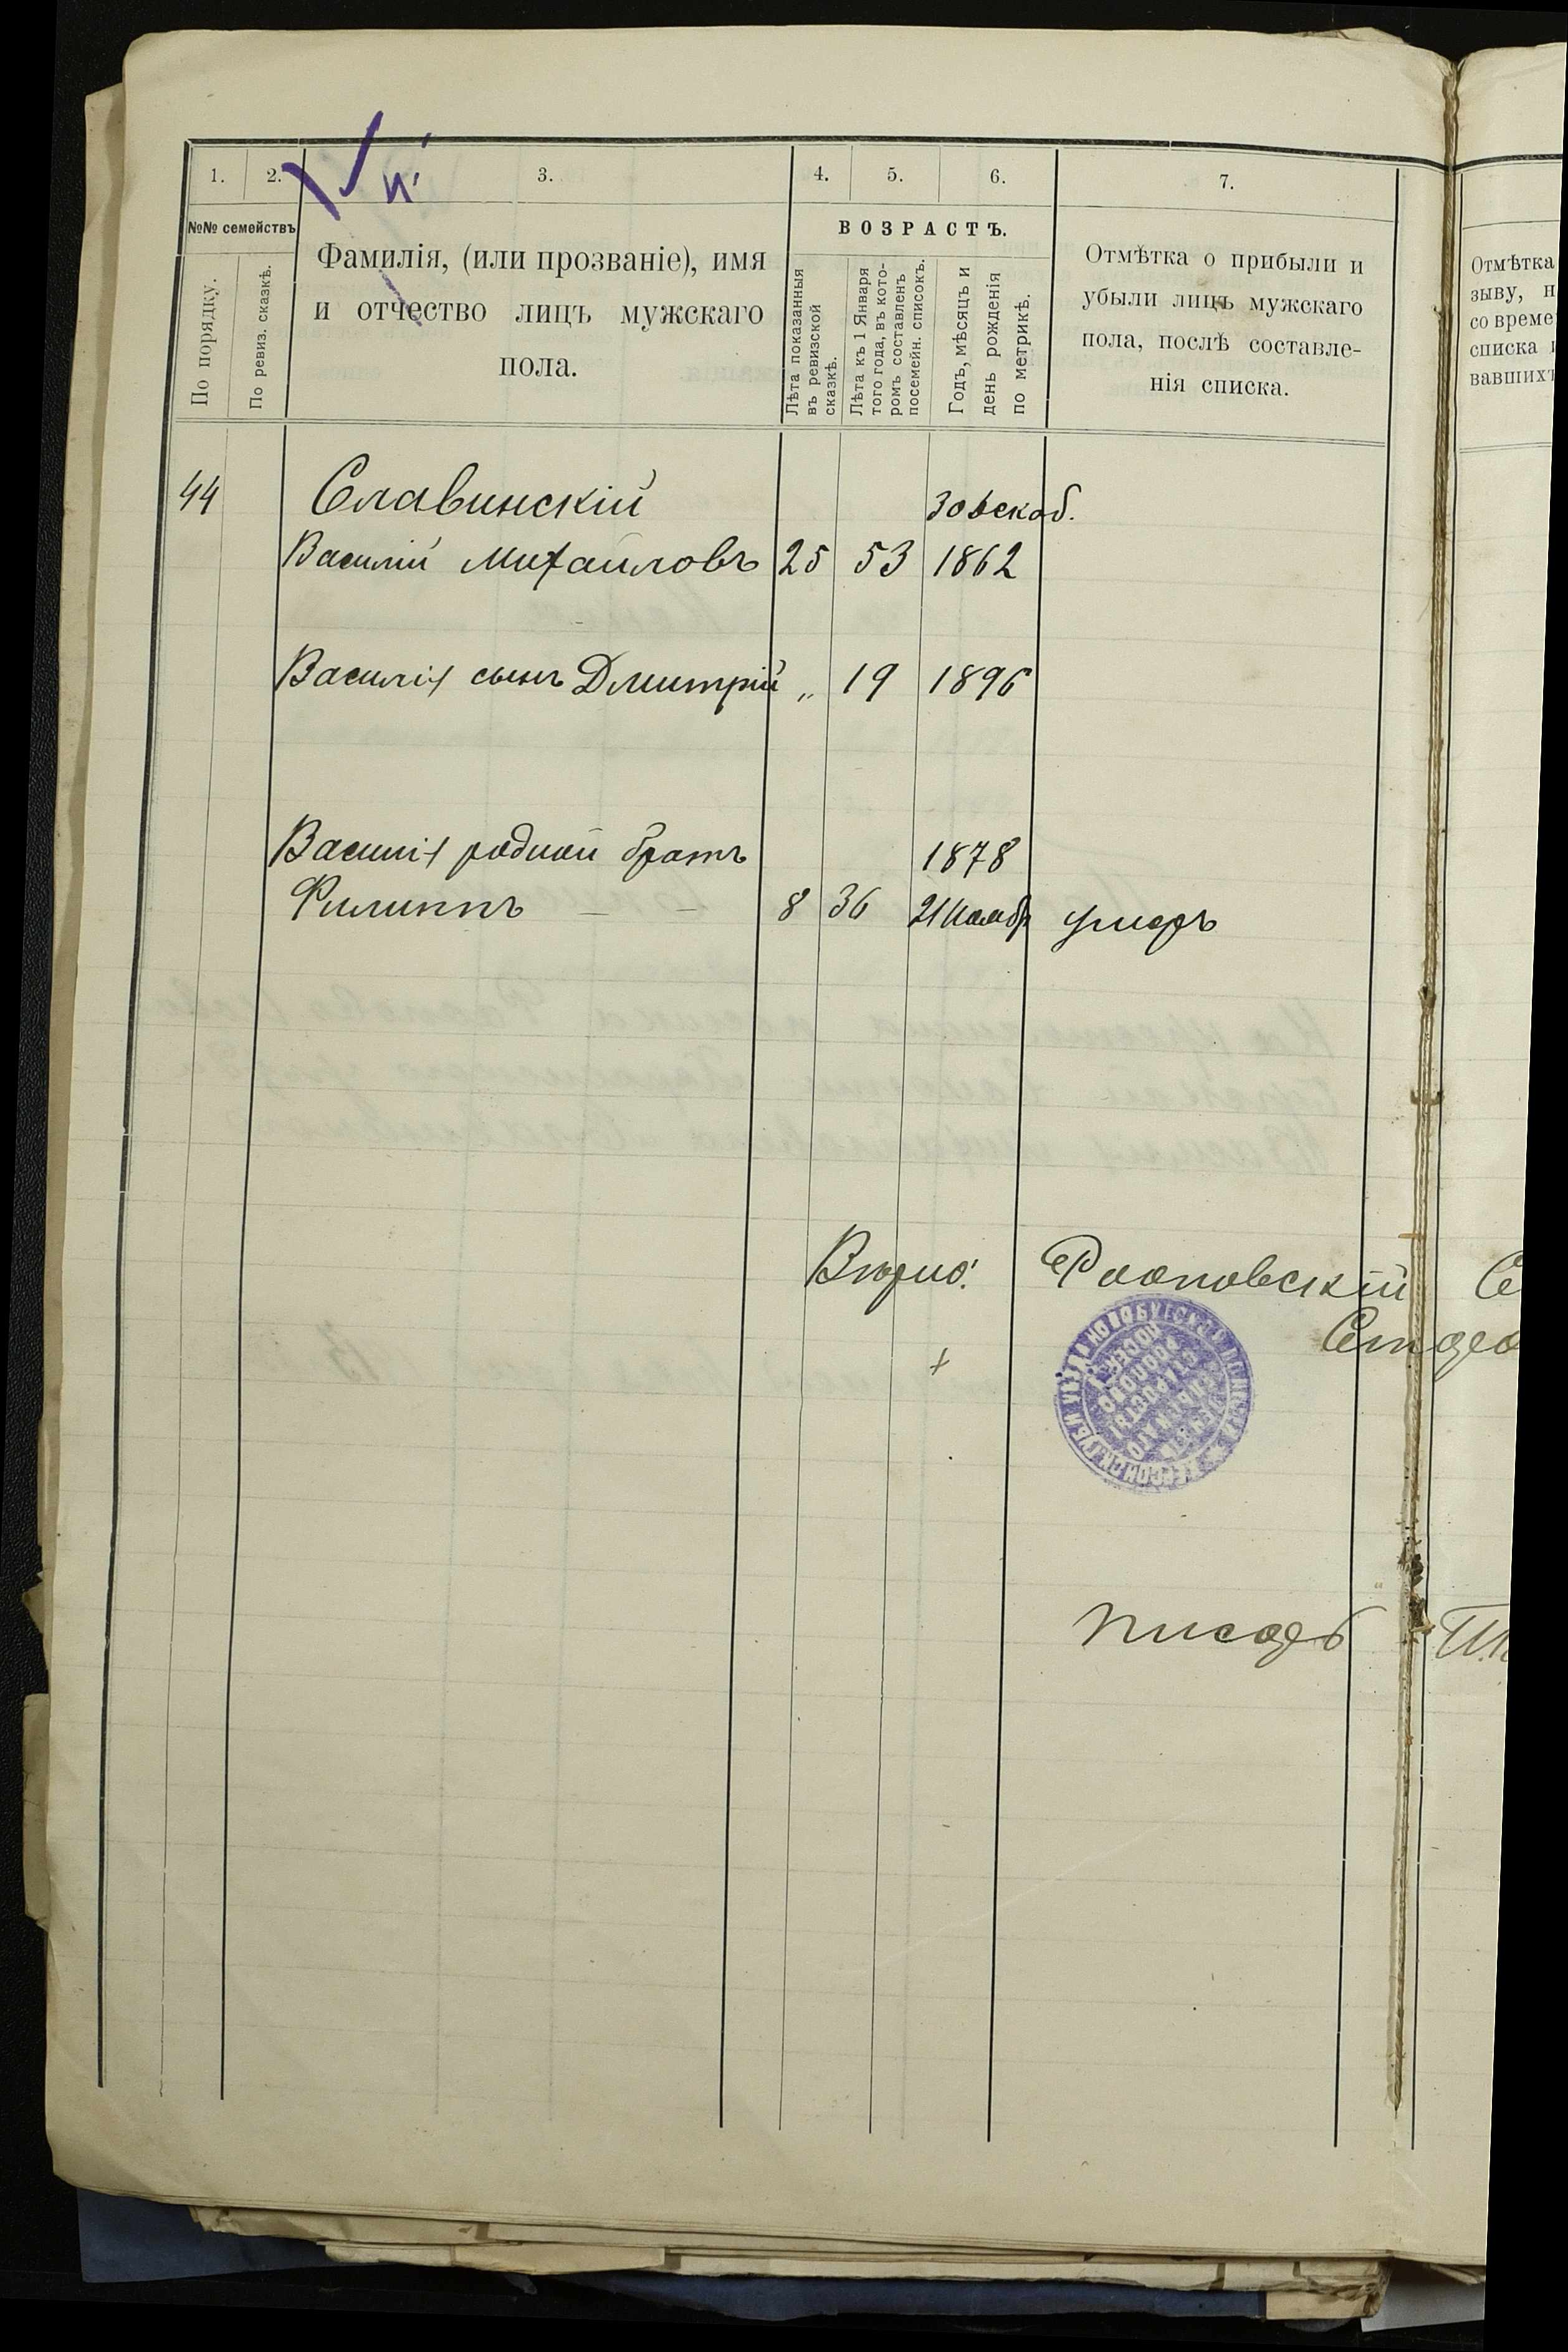 1. 2. 3. 4. 5. 6. 7.
№№ семействъ
По порядку.
По ревиз. сказкѣ.
Фамилія, (или прозваніе), имя
и отчество лицъ мужскаго
пола.
ВОЗРАСТЪ.
Лѣта показанныя
въ ревизской
сказкѣ.
Лѣта къ 1 Января
того года, въ кото-
ромъ составленъ
посемейн. списокъ.
Годъ, мѣсяцъ и
день рожденія
по метрикѣ.
Отмѣтка о прибыли и
убыли лицъ мужскаго
пола, послѣ составле-
нія списка.
Отмѣтка
зыву, п
со време
списка
вавшихъ
44 Славинскій 30 декаб.
Василій Михайловъ 25 53 1862
Василія сынъ Дмитрій „ 19 1896
Василія родной братъ 1878
Филиппъ — — 8 36 21 Ноябр умеръ
Вѣрно: Фооповскій Се
Старо
Писарь